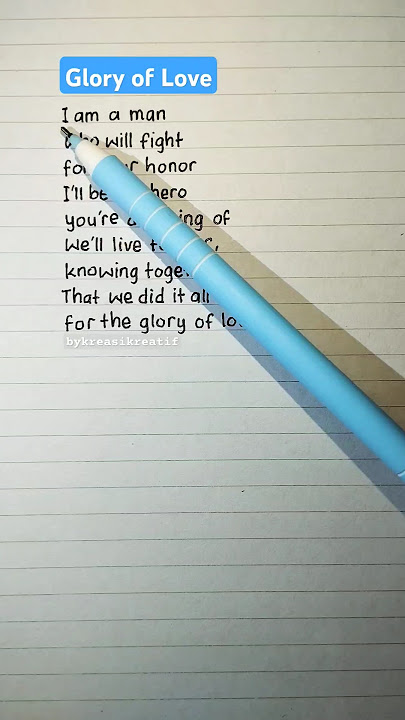 Glory of Love
I am a man
will fight
honor
I'll hero
you're of
We'll live
knowing
That we did it all
for the glory of
bykreasikreatif